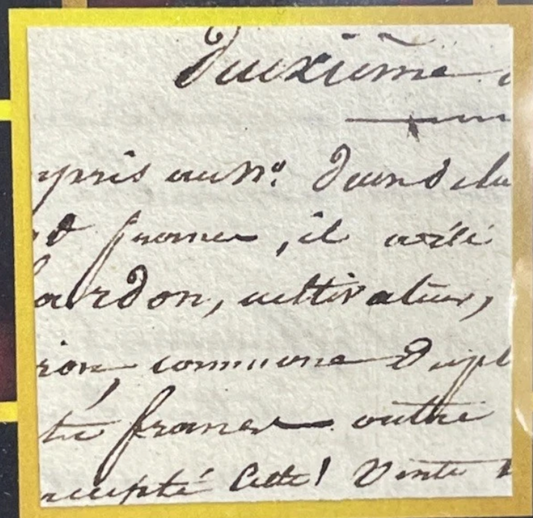 Deuxième
mpris au N.º Deux de la
francs, il a été
ardon, cultivateur,
commune D
francs outre
accepté cette! Vente